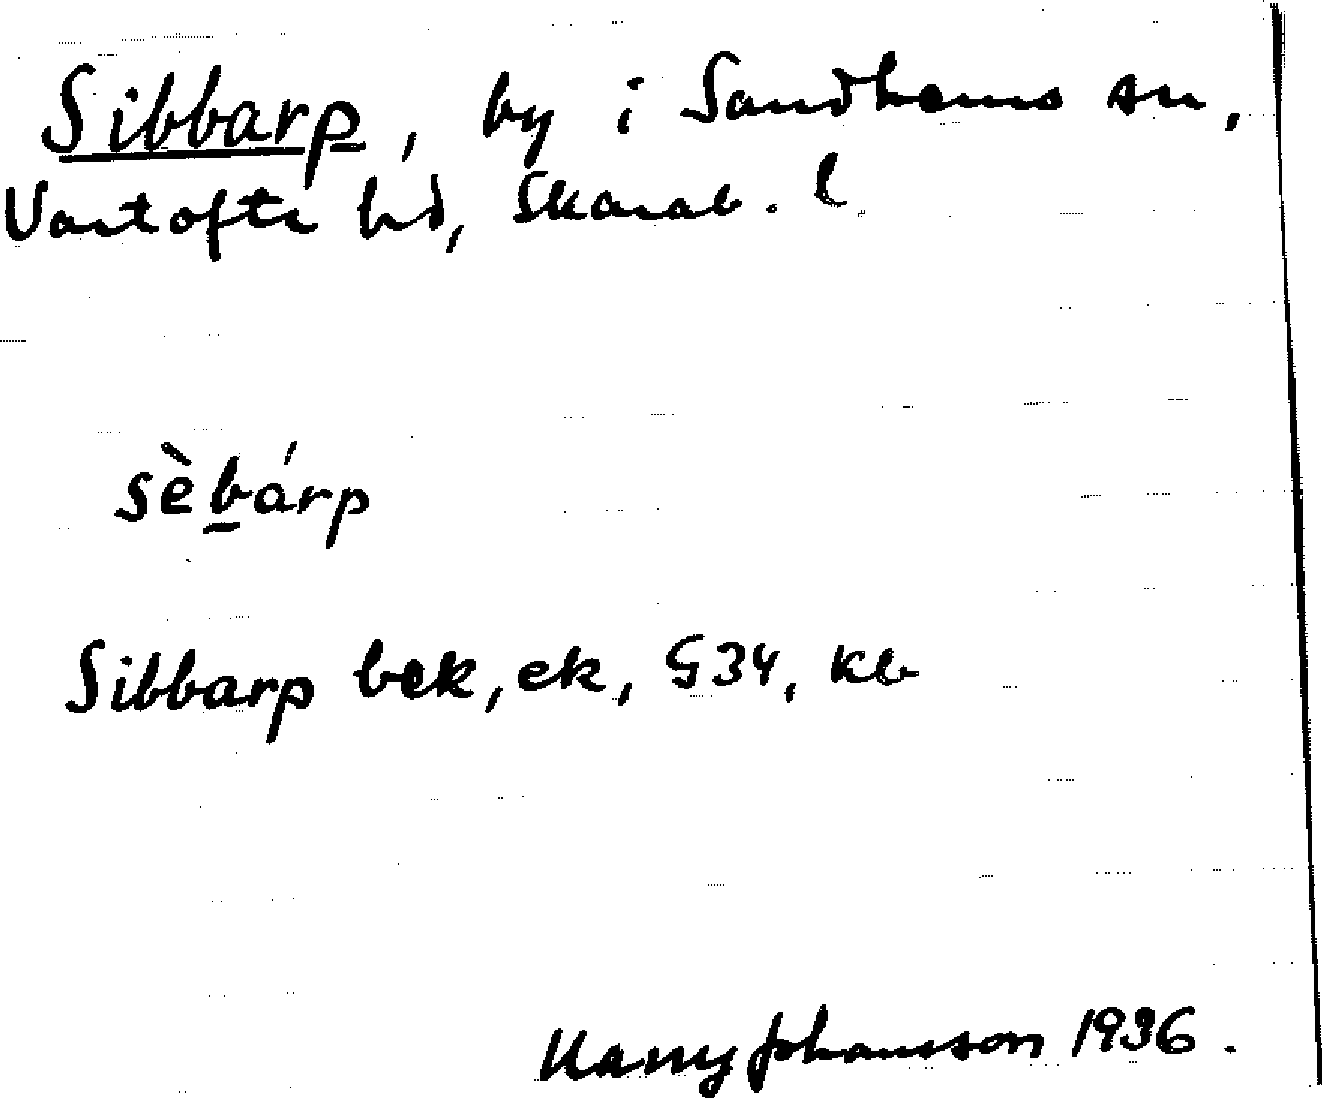 Sibbarp, by i Sandhems sn,
Vartofta hd, Skarab. l
sèbárp
Sibbarp bek, ek, G34, kb
Harry Johansson 1936.